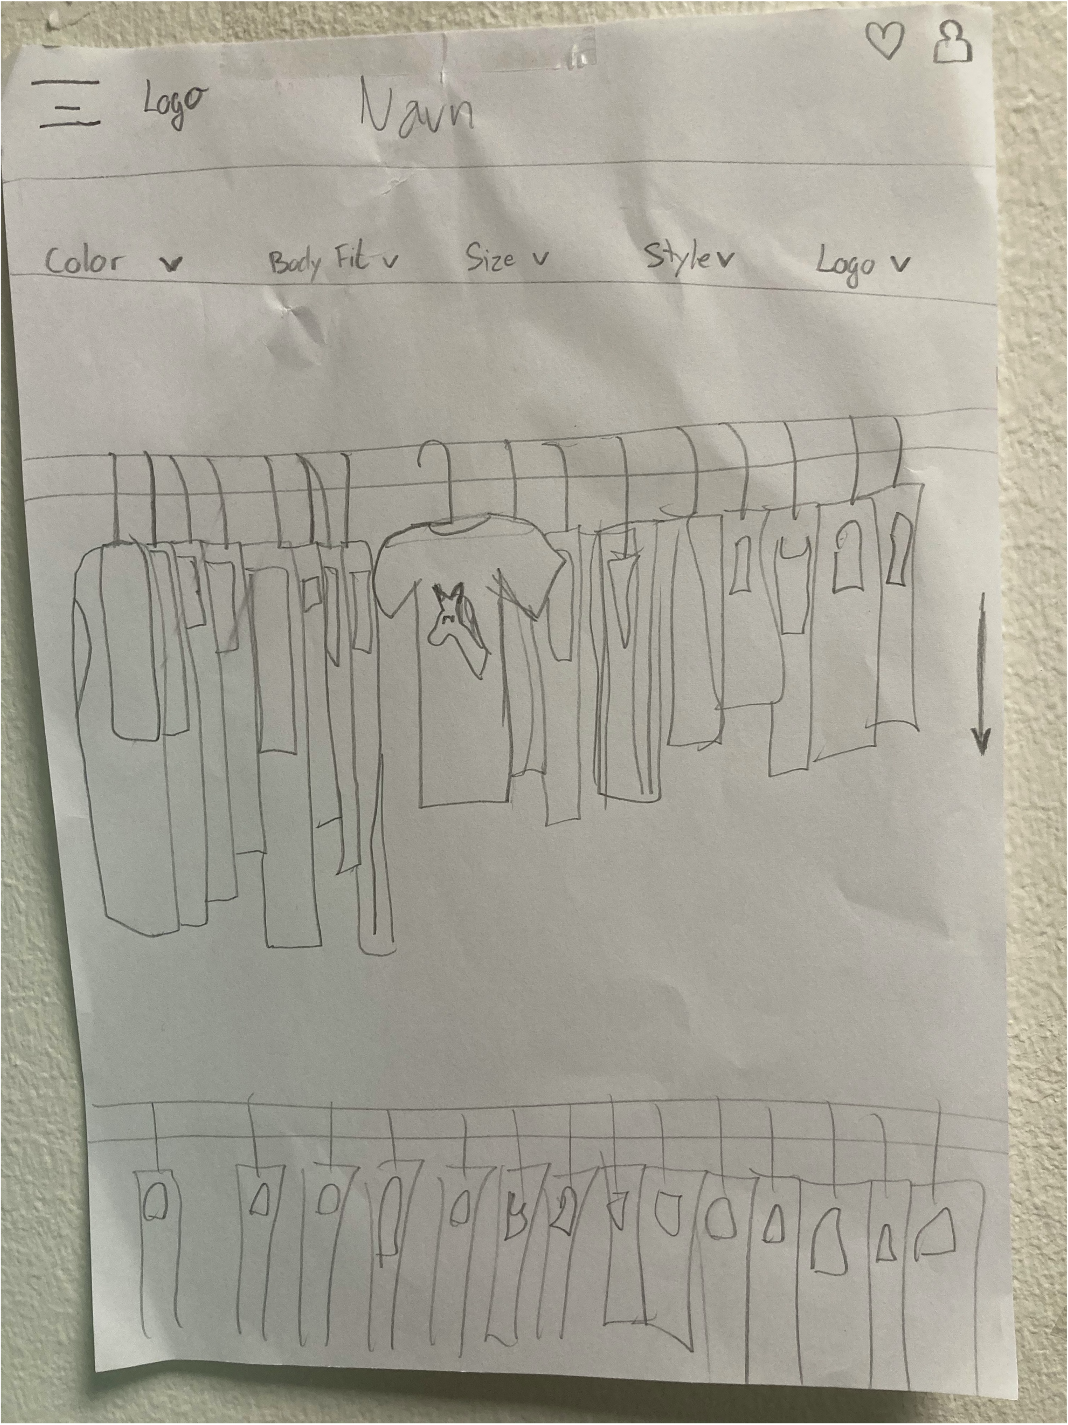 Logo Navn
Color v Body Fit v Size v Style v Logo v